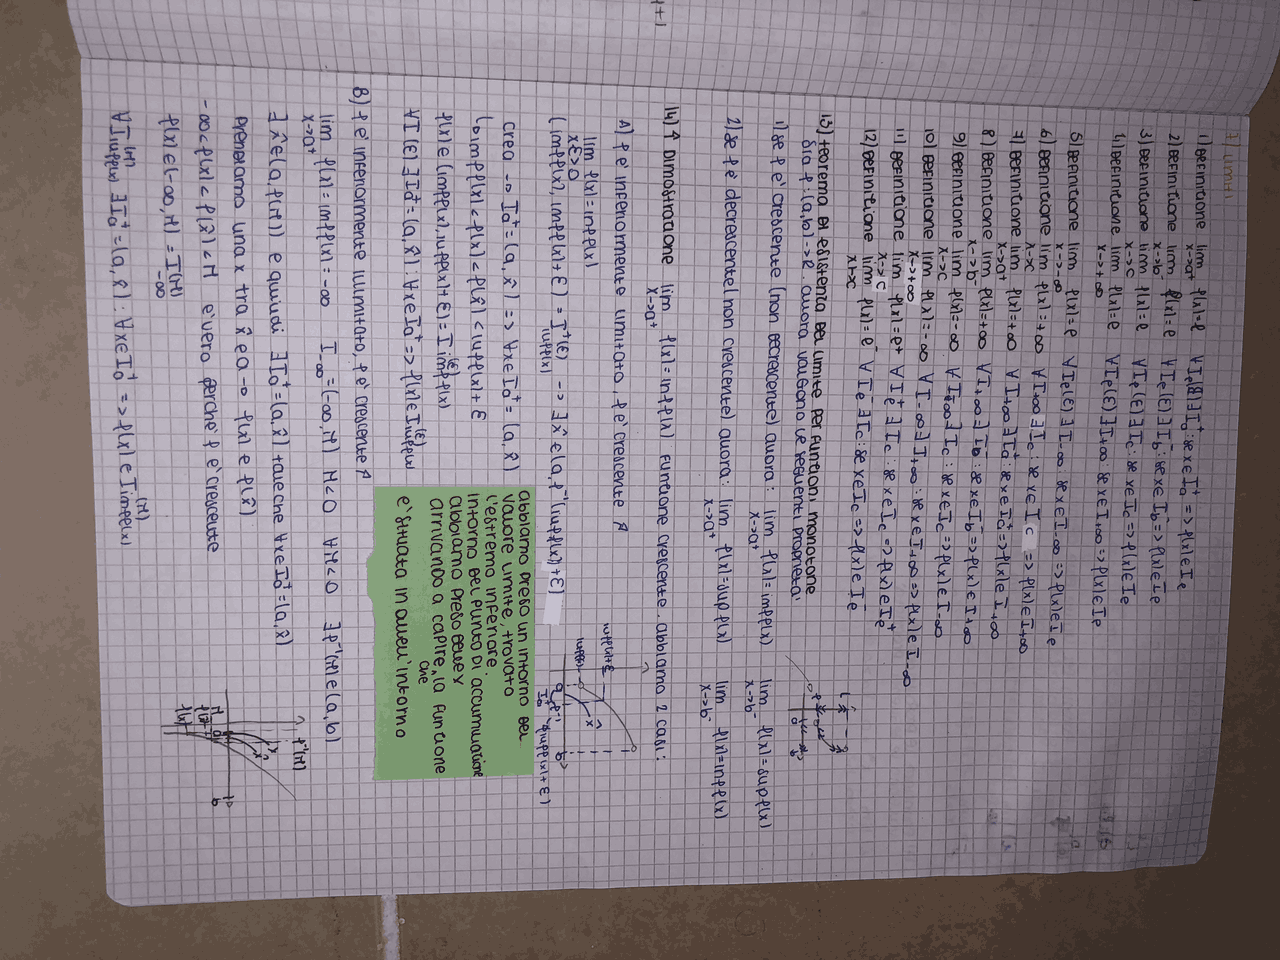 7) LIMITI
1) DEFINIZIONE lim x->a⁺ f(x)=ℓ ∀Iℓ(ε)∃Ia⁺: se x∈Ia⁺ => f(x)∈Iℓ
2) DEFINIZIONE lim x->b⁻ f(x)=ℓ ∀Iℓ(ε)∃Ib⁻: se x∈Ib⁻ => f(x)∈Iℓ
3) DEFINIZIONE lim x->c f(x)=ℓ ∀Iℓ(ε)∃Ic: se x∈Ic => f(x)∈Iℓ
4) DEFINIZIONE lim x->+∞ f(x)=ℓ ∀Iℓ(ε)∃I+∞: se x∈I+∞ => f(x)∈Iℓ
5) DEFINIZIONE lim x->-∞ f(x)=ℓ ∀Iℓ(ε)∃I-∞: se x∈I-∞ => f(x)∈Iℓ
6) DEFINIZIONE lim x->c f(x)=+∞ ∀I+∞∃Ic: se x∈Ic => f(x)∈I+∞
7) DEFINIZIONE lim x->a⁺ f(x)=+∞ ∀I+∞∃Ia⁺: se x∈Ia⁺ => f(x)∈I+∞
8) DEFINIZIONE lim x->b⁻ f(x)=+∞ ∀I+∞∃Ib⁻: se x∈Ib⁻ => f(x)∈I+∞
9) DEFINIZIONE lim x->c f(x)=-∞ ∀I-∞∃Ic: se x∈Ic => f(x)∈I-∞
10) DEFINIZIONE lim x->+∞ f(x)=-∞ ∀I-∞∃I+∞: se x∈I+∞ => f(x)∈I-∞
11) DEFINIZIONE lim x->c f(x)=ℓ⁺ ∀Iℓ⁺∃Ic: se x∈Ic => f(x)∈Iℓ⁺
12) DEFINIZIONE lim x->c f(x)=ℓ⁻ ∀Iℓ⁻∃Ic: se x∈Ic => f(x)∈Iℓ⁻
13) teorema di esistenza del limite per funzioni monotone
Sia f:(a,b)->R. allora valgono le seguenti proprietà:
1) se f è crescente (non decrescente) allora: lim x->a⁺ f(x)=inf f(x) lim x->b⁻ f(x)=sup f(x)
2) se f è decrescente (non crescente) allora: lim x->a⁺ f(x)=sup f(x) lim x->b⁻ f(x)=inf f(x)
14) 1ª DIMOSTRAZIONE lim x->a⁺ f(x)=inf f(x) funzione crescente. abbiamo 2 casi:
A) f è inferiormente limitato, f è crescente
lim f(x)=inf f(x)
x ε>0
(inf f(x), inf f(x)+ε) = I⁺(ε) inf f(x) -> ∃x̂∈(a, f⁻¹(inf f(x))+ε)
crea -> Ia⁺=(a,x̂) => ∀x∈Ia⁺=(a,x̂)
↳ inf f(x)<f(x)<f(x̂)<inf f(x)+ε
f(x)∈(inf f(x), inf f(x)+ε)=I(ε) inf f(x)
∀I(ε)∃Ia⁺=(a,x̂): ∀x∈Ia⁺ => f(x)∈I(ε) inf f(x)
abbiamo preso un intorno del
valore limite, trovato
l'estremo inferiore.
intorno del punto di accumulazione
abbiamo preso
arrivando a capire, che la funzione
è situata in quell'intorno
B) f è inferiormente illimitato, f è crescente
lim x->a⁺ f(x)=inf f(x)=-∞ I-∞=(-∞,M) M<0 ∀M<0 ∃f⁻¹(M)∈(a,b)
∃x̂∈(a,f(M)) e quindi ∃Ia⁺=(a,x̂) tale che ∀x∈Ia⁺=(a,x̂)
prendiamo una x tra x̂ e a -> f(x) e f(x̂)
-∞<f(x)<f(x̂)<M è vero perché f è crescente
f(x)∈(-∞,M) = I(M) -∞
∀I(M) inf f(x) ∃Ia⁺=(a,x̂): ∀x∈Ia⁺ => f(x)∈I(M) inf f(x)